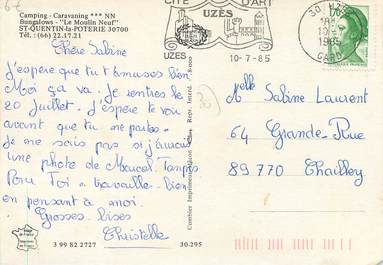 Camping - Caravaning *** NN
Bungalows - "Le Moulin Neuf"
ST-QUENTIN-la-POTERIE 30700
Tél. : (66) 22.17.21
CITÉ D'ART
UZÈS
UZES 10-7-85
30 UZES
10-7
1985
GARD
Chère Sabine
J'espère que tu t'amuses bien
Moi ça va. Je rentres le
20 Juillet. J'espère te voir
avant que tu ne partes.
Je ne sais pas si j'aurais
une photo de Marcel
Pour Toi "travaille" bien
en pensant à moi.
Grosses bises
Christelle
Melle Sabine Laurent
64 Grande-Rue
89770 Chailley
Combier Imprimeur
Repr. Interd.
3 99 82.2727 30.295